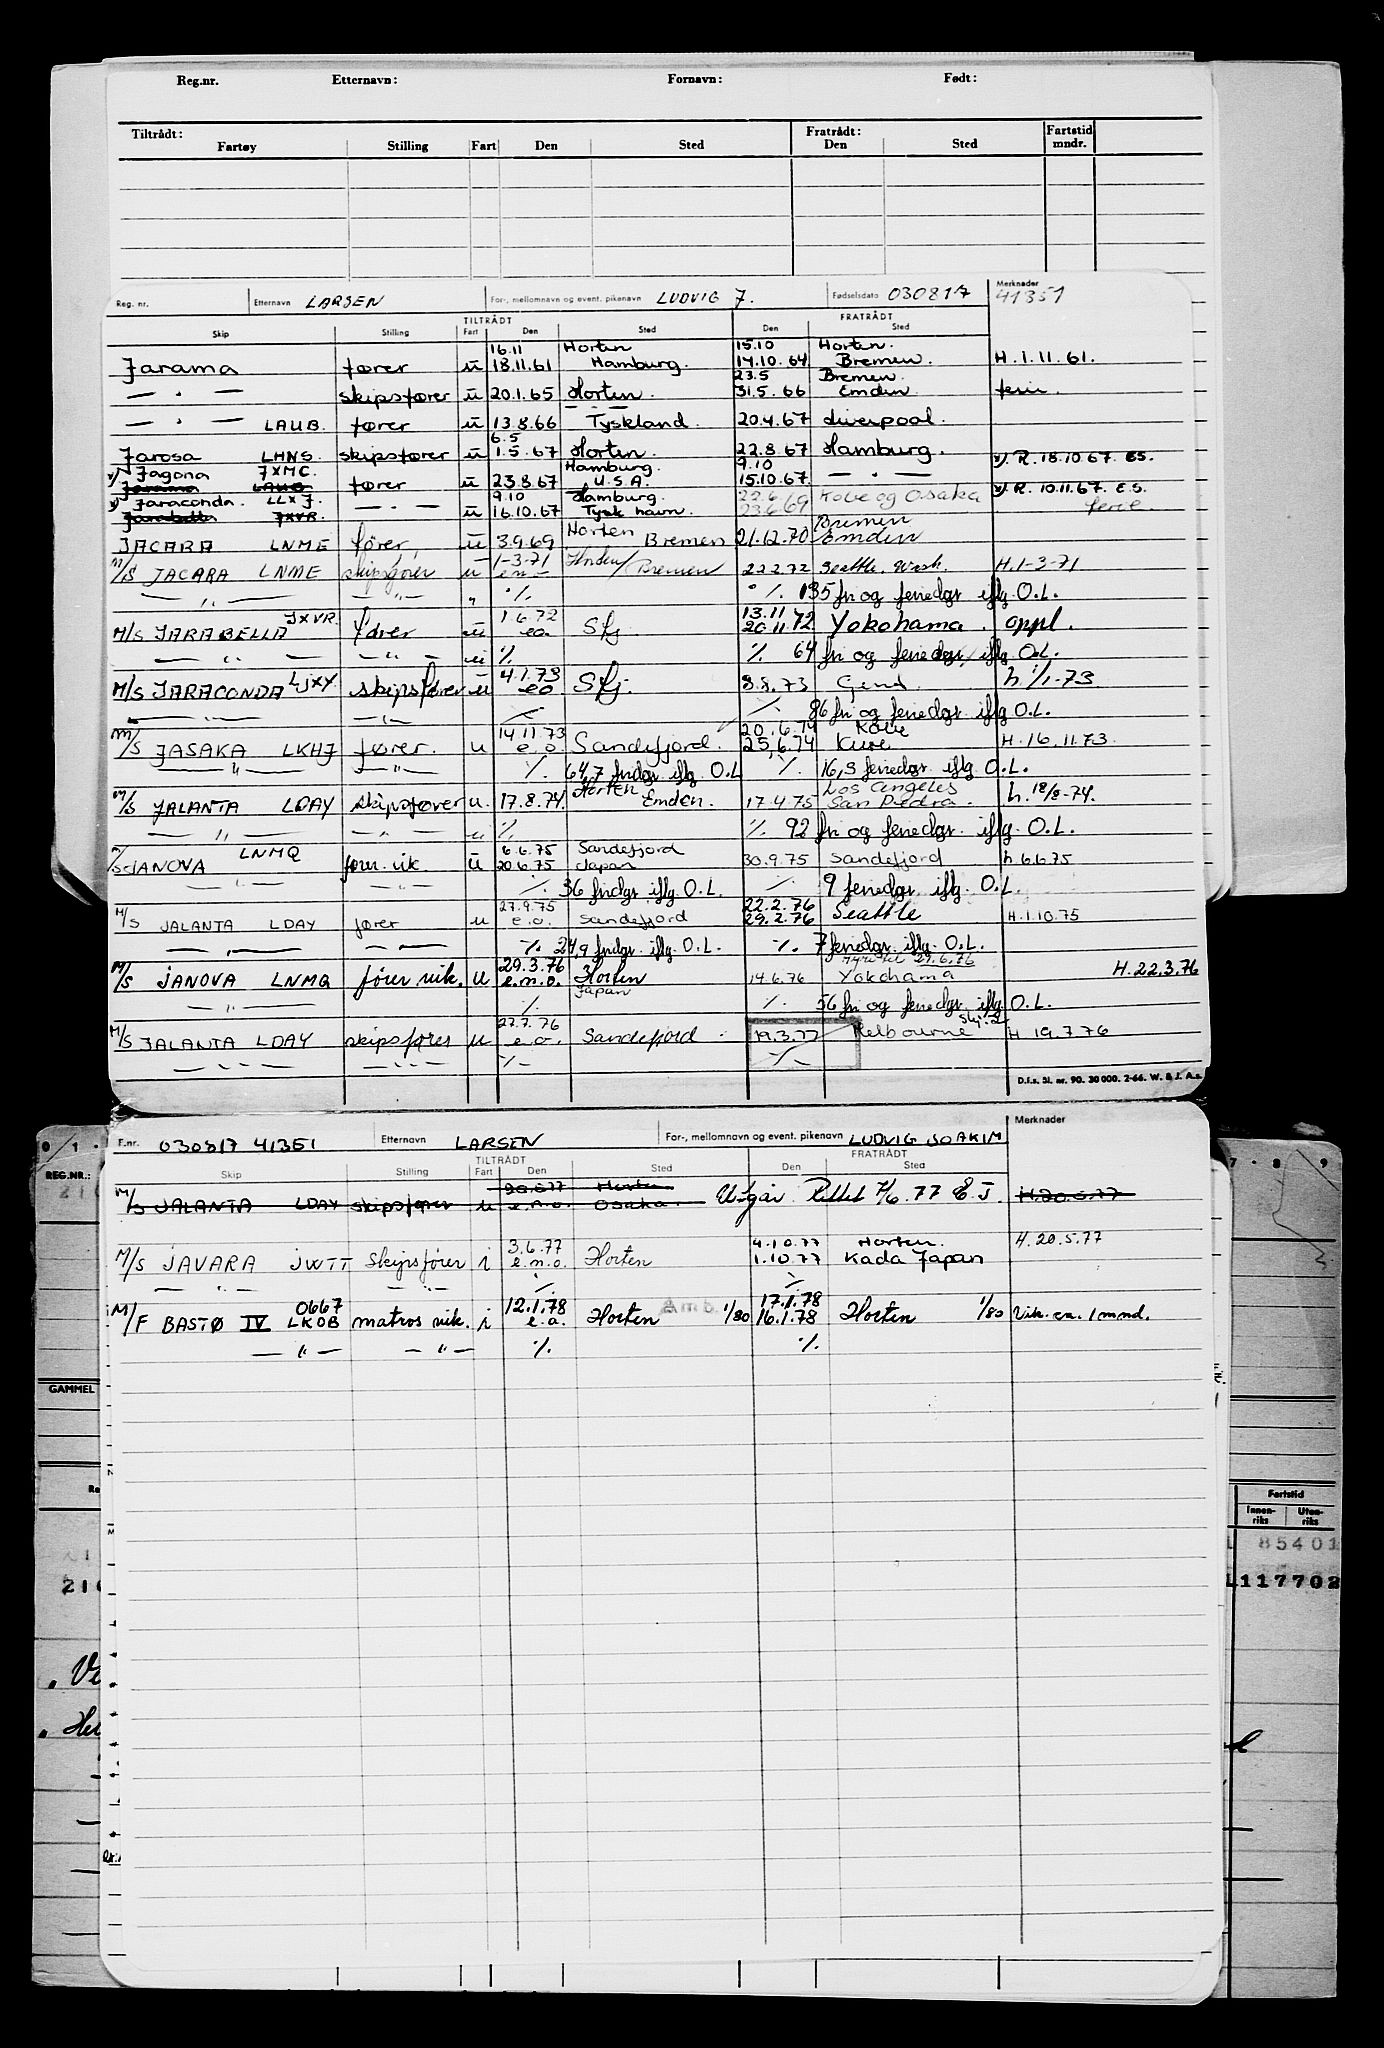 Reg.nr. Etternavn: Fornavn: Født:
Tiltrådt: Fratrådt: Fartstid
Fartøy Stilling Fart Den Sted Den Sted mndr.
Reg. nr. Etternavn LARSEN For-, mellomnavn og event. pikenavn LUDVIG J. Fødselsdato 030817 Merknader 41351
TILTRÅDT FRATRÅDT
Skip Stilling Fart Den Sted Den Sted
16.11 Horten 15.10 Horten.
Jarama fører u 18.11.61 Hamburg. 14.10.64 Bremen. H.1.11.61.
23.5 Bremen.
— " — skipsfører u 20.1.65 Horten. 31.5.66 Emden ferie.
— " — LAUB. fører u 13.8.66 Tyskland. 20.4.67 Liverpool.
6.5
Jarosa LHNS. skipsfører u 1.5.67 Horten. 22.8.67 Hamburg.
x) Jagona JXMC. Hamburg. 9.10 x) R. 18.10.67. ES.
Jarama LAUB fører u 23.8.67 U.S.A. 15.10.67 — " —
x) Jaraconda. LLXJ. 9.10 Hamburg. 22.6 Kobe og Osaka x) R. 10.11.67. E.S.
Jarabella JXVR. — " — u 16.10.67 Tysk havn. 23.6.69 ferie.
JACARA LNME fører u 3.9.69 Horten Bremen 21.12.70 Bremen Emden
M/S JACARA LNME skipsfører u 1-3-71 e.n.- Horten/Bremen 22.2.72 Seattle. Wash. H.1-3-71
— " — — " — " % % 135 fri og feriedgr iflg O.L.
JXVR. 1.6.72 13.11
M/S JARABELLA fører u eo Sfj. 20.11.72 Yokohama. oppl.
— " — — " — u % % 64 fri og feriedgr. iflg O.L.
4.1.73
M/S JARACONDA LJXY skipsfører u eo Sfj. 8.8.73 Gend. h. 1/1-73.
— " — — " — % % 86 fri og feriedgr. iflg O.L.
14.11.73 20.6.74 Kobe
M/S JASAKA LKHJ fører. u e.o Sandefjord. 25.6.74 Kure H.16.11.73.
— " — — " — % 64,7 fridgr. iflg. O.L % 16,3 feriedgr. iflg O.L.
M/S JALANTA LDAY skipsfører u. 17.8.74. Horten Emden. 17.4.75 Los Angeles San Pedro. h. 18/8-74.
— " — — " — u % % 92 fri og feriedgr. iflg. O.L.
LNMQ 6.6.75 Sandefjord
M/S JANOVA fører. vik. u 20.6.75 Japan 30.9.75 Sandefjord h 6.6.75
— " — — " — % 36 fridgr iflg. O.L. % 9 feriedgr. iflg. O.L.
27.9.75 22.2.76
M/S JALANTA LDAY fører u e.o. Sandefjord 29.2.76 Seattle H.1.10.75
— " — — " — % 24,9 fridgr. iflg. O.L. % 7 feriedgr. iflg. O.L.
29.3.76 29.6.76
M/S JANOVA LNMQ fører vik. u e.n.o. Horten Japan 14.6.76 Yokohama H.22.3.76
— " — % % 56 fri og feriedgr. iflg O.L.
27.7.76
M/S JALANTA LDAY skipsfører u e.o. Sandefjord 19.3.77 Melbourne H 19.7.76
— " — — " — % %
D.f.s. Sl. nr. 90. 30 000. 2-66. W. & J. A.s.
F.nr. 030817 41351 Etternavn LARSEN For-, mellomnavn og event. pikenavn LUDVIG JOAKIM Merknader
TILTRÅDT FRATRÅDT
Skip Stilling Fart Den Sted Den Sted
20.5.77 Horten
M/S JALANTA LDAY skipsfører u e.n.o. Osaka. Utgår. Rettet 7/6.77 E.J. H.20.5.77
3.6.77 4.10.77 Horten. H.20.5.77
M/S JAVARA JWTT Skipsfører i e.n.o. Horten 1.10.77 Kada Japan
— " — — " — % %
0667 12.1.78 17.1.78
M/F BASTØ IV LKOB matros vik. i e.o. Horten Amb. 1/80 16.1.78 Horten 1/80 Vik. ca. 1 mnd.
— " — — " — % %
0 / 1 - 7 - 8 - 9
REG.NR.:
GAMMEL
Fartstid
Innen-riks Uten-riks
85401
117702